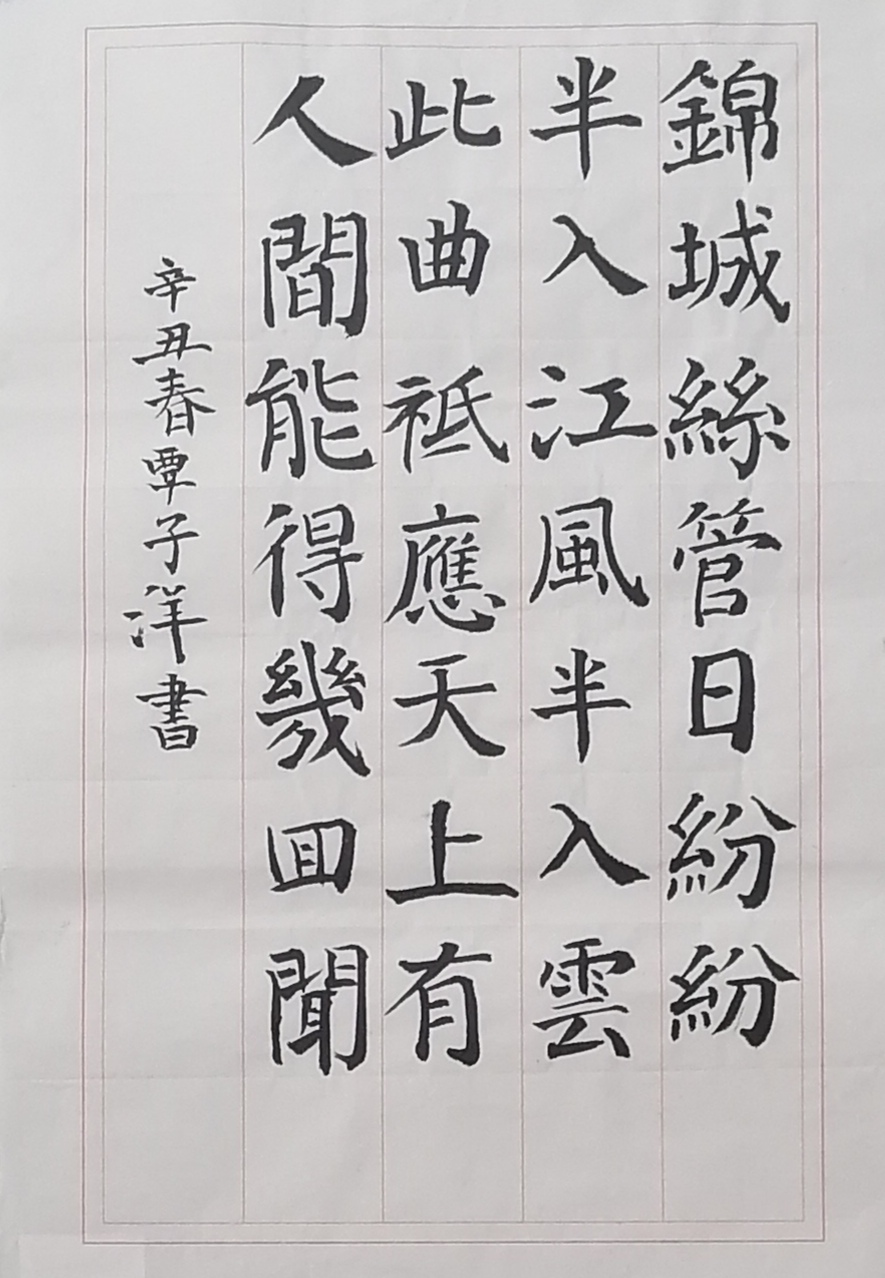 錦城絲管日紛紛
半入江風半入雲
此曲祗應天上有
人間能得幾回聞
辛丑春覃子洋書